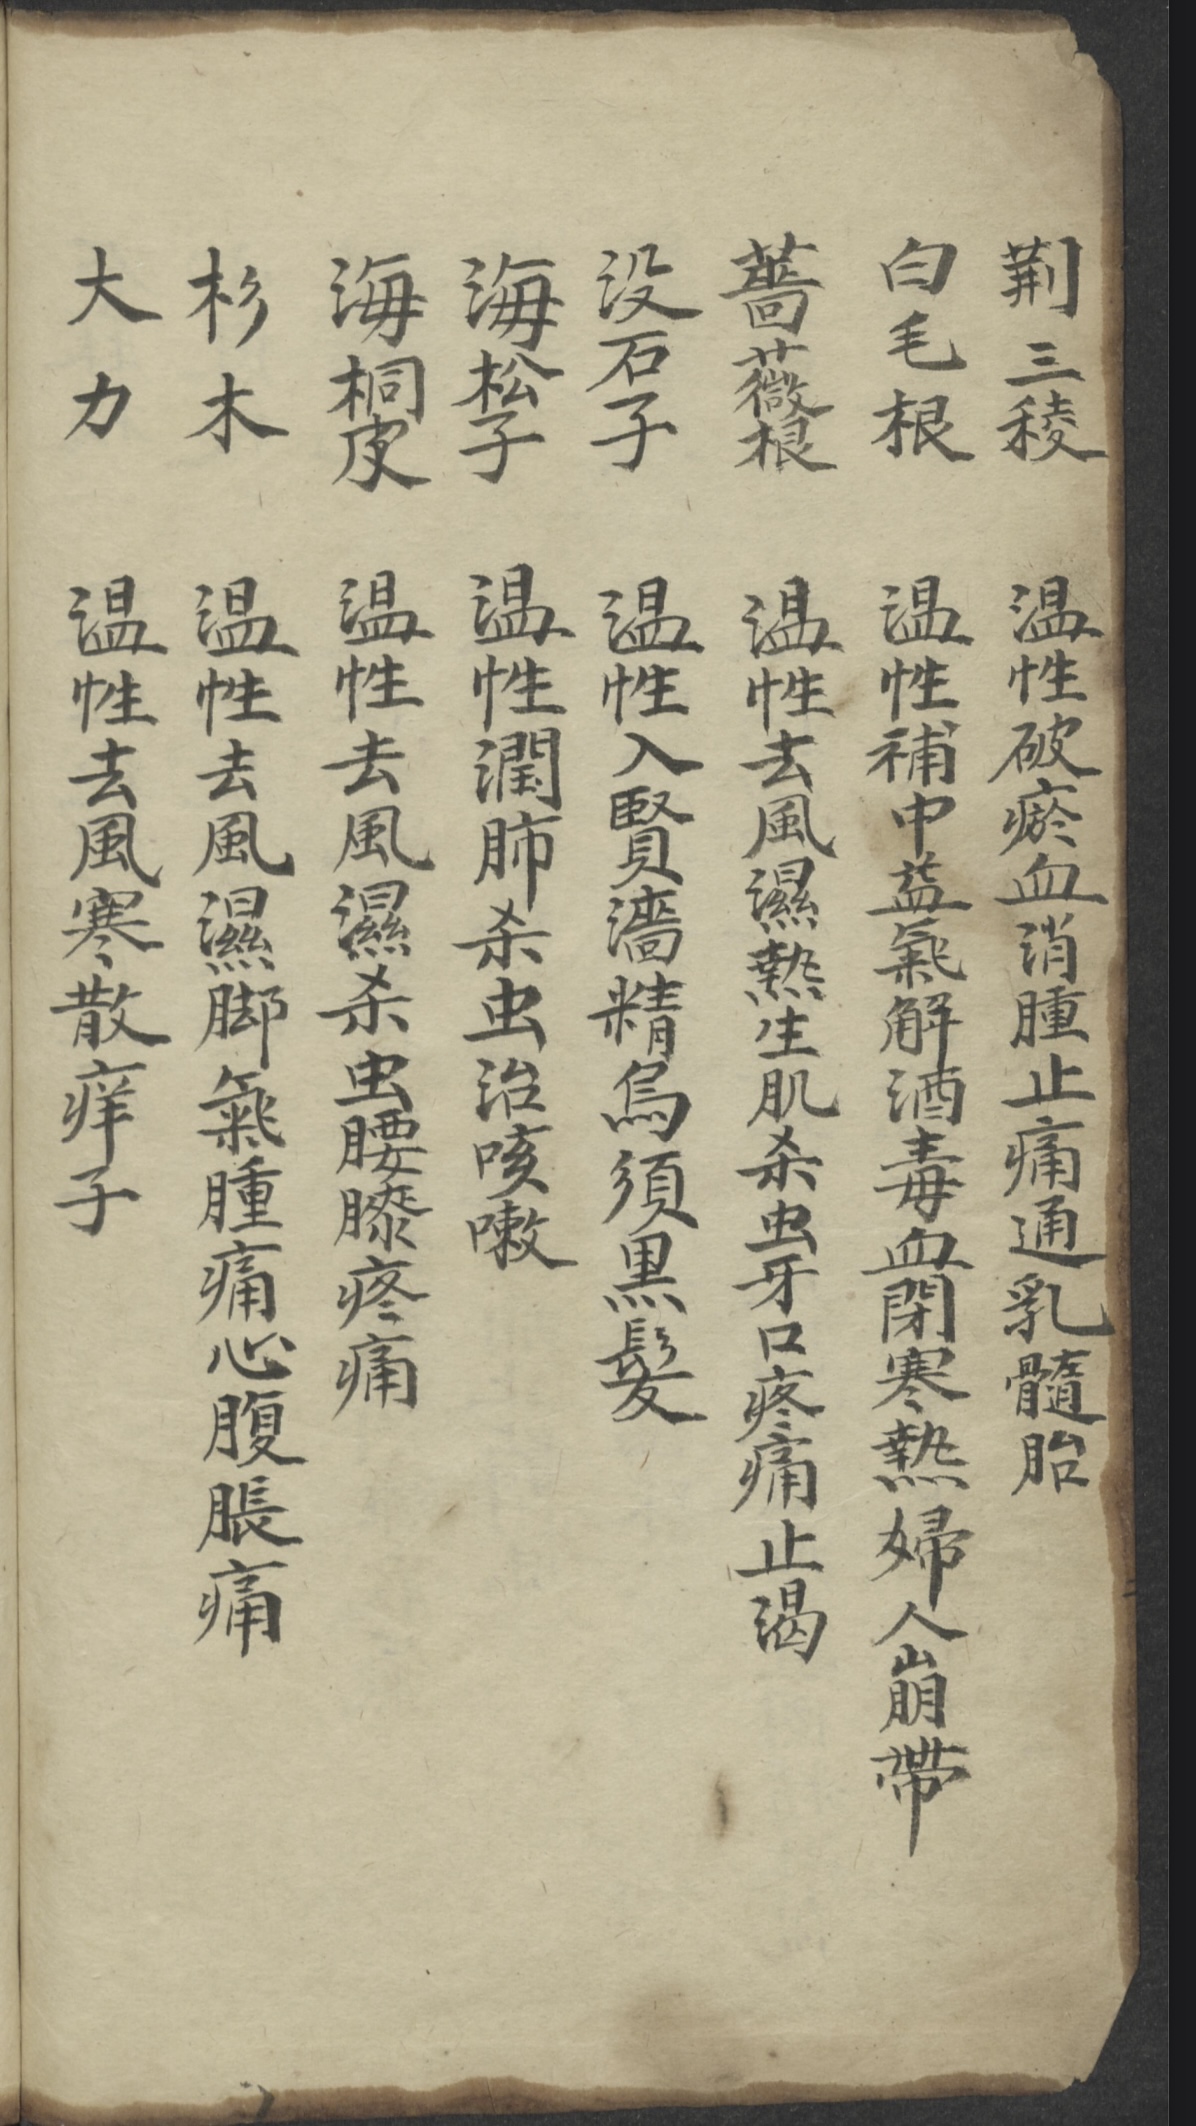 荆三稜 温性破瘀血消腫止痛通乳髓胎
白毛根 温性補中益氣解酒毒血閉寒熱婦人崩帶
薔薇根 温性去風濕熱生肌杀虫牙口疼痛止渴
没石子 温性入賢濇精烏須黑髮
海松子 温性潤肺杀虫治咳嗽
海桐皮 温性去風濕杀虫腰膝疼痛
杉木 温性去風濕脚氣腫痛心腹脹痛
大力 温性去風寒散痒子